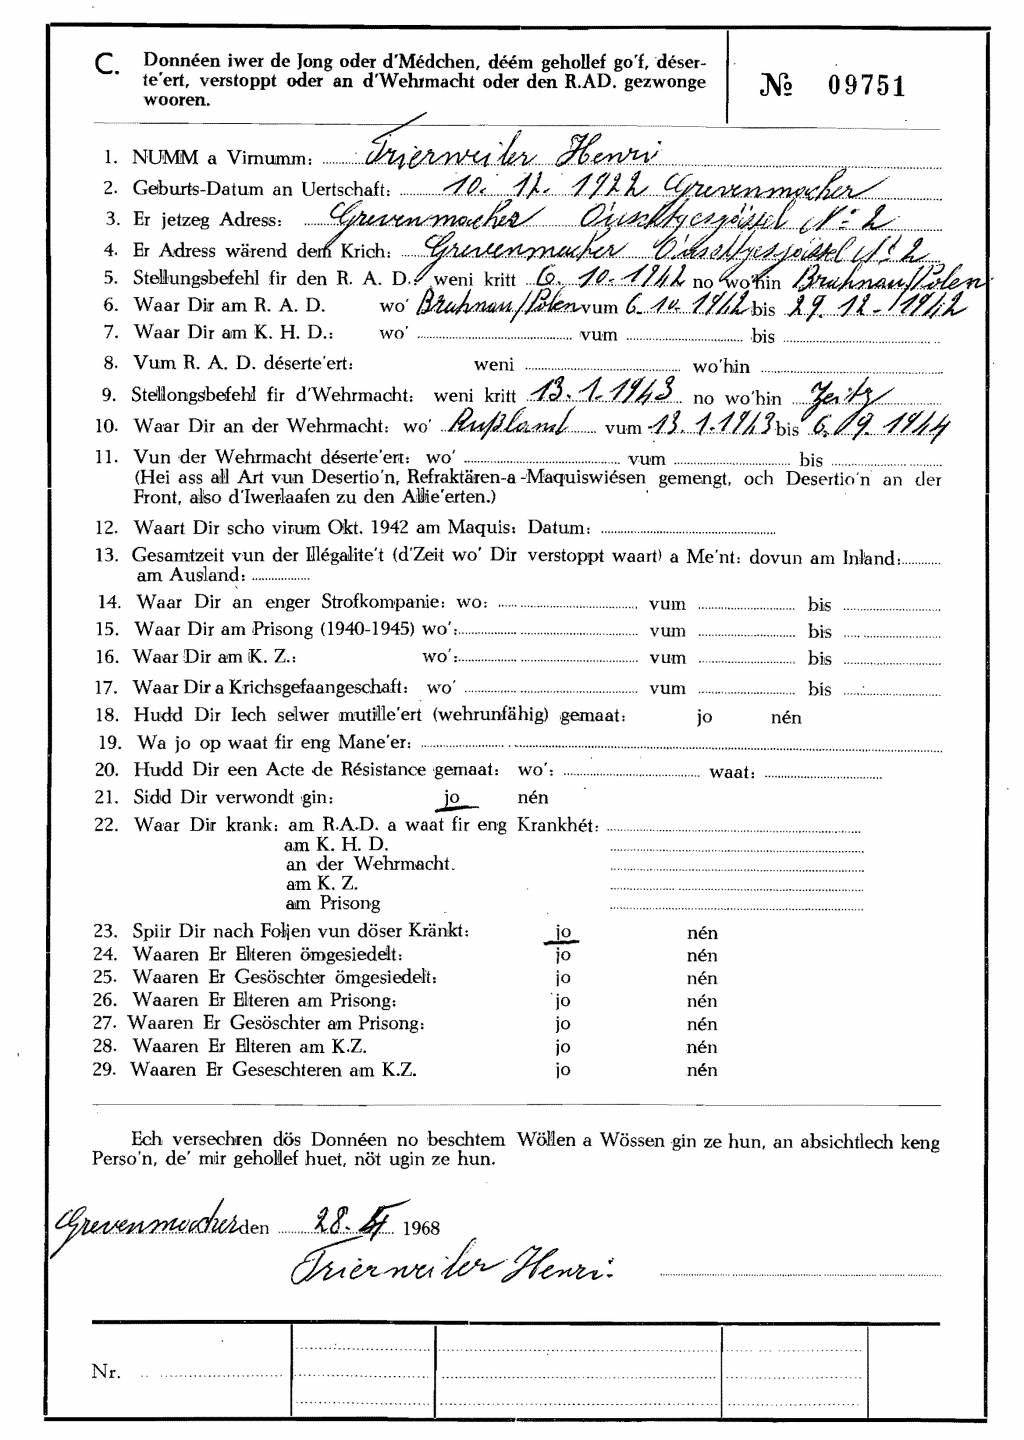 C. Donnéen iwer de Jong oder d'Médchen, déém gehollef go'f, déser-
te'ert, verstoppt oder an d'Wehrmacht oder den R.AD. gezwonge
wooren.
№ 09751
1. NUMM a Virnumm: Trierweiler Henri
2. Geburts-Datum an Uertschaft: 10. 12. 1922 Grevenmacher
3. Er jetzeg Adress: Grevenmacher № 2
4. Er Adress wärend dem Krich: Grevenmacher № 2
5. Stellungsbefehl fir den R. A. D.: weni kritt 6. 10. 1942 no wo'hin Bruhnau/Polen
6. Waar Dir am R. A. D. wo' Bruhnau/Polen vum 6. 10. 1942 bis 29. 12. 1942
7. Waar Dir am K. H. D.: wo' vum bis
8. Vum R. A. D. déserte'ert: weni wo'hin
9. Stellongsbefehl fir d'Wehrmacht: weni kritt 13. 1. 1943 no wo'hin Zeitz
10. Waar Dir an der Wehrmacht: wo' Rußland vum 13. 1. 1943 bis 6. 09. 1944
11. Vun der Wehrmacht déserte'ert: wo' vum bis
(Hei ass all Art vun Desertio'n, Refraktären-a-Maquiswiésen gemengt, och Desertio'n an der
Front, also d'Iwerlaafen zu den Allie'erten.)
12. Waart Dir scho virum Okt. 1942 am Maquis: Datum:
13. Gesamtzeit vun der Illégalite't (d'Zeit wo' Dir verstoppt waart) a Me'nt: dovun am Inland:
am Ausland:
14. Waar Dir an enger Strofkompanie: wo: vum bis
15. Waar Dir am Prisong (1940-1945) wo': vum bis
16. Waar Dir am K. Z.: wo': vum bis
17. Waar Dir a Krichsgefaangeschaft: wo' vum bis
18. Hudd Dir Iech selwer mutille'ert (wehrunfähig) gemaat: jo nén
19. Wa jo op waat fir eng Mane'er:
20. Hudd Dir een Acte de Résistance gemaat: wo': waat:
21. Sidd Dir verwondt gin: jo nén
22. Waar Dir krank: am R.A.D. a waat fir eng Krankhét:
am K. H. D.
an der Wehrmacht.
am K. Z.
am Prisong
23. Spiir Dir nach Foljen vun döser Kränkt: jo nén
24. Waaren Er Elteren ömgesiedelt: jo nén
25. Waaren Er Gesöschter ömgesiedelt: jo nén
26. Waaren Er Elteren am Prisong: jo nén
27. Waaren Er Gesöschter am Prisong: jo nén
28. Waaren Er Elteren am K.Z. jo nén
29. Waaren Er Geseschteren am K.Z. jo nén
Ech versechren dös Donnéen no beschtem Wöllen a Wössen gin ze hun, an absichtlech keng
Perso'n, de' mir gehollef huet, nöt ugin ze hun.
Grevenmacher den 28. 1968
Trierweiler Henri.
Nr.